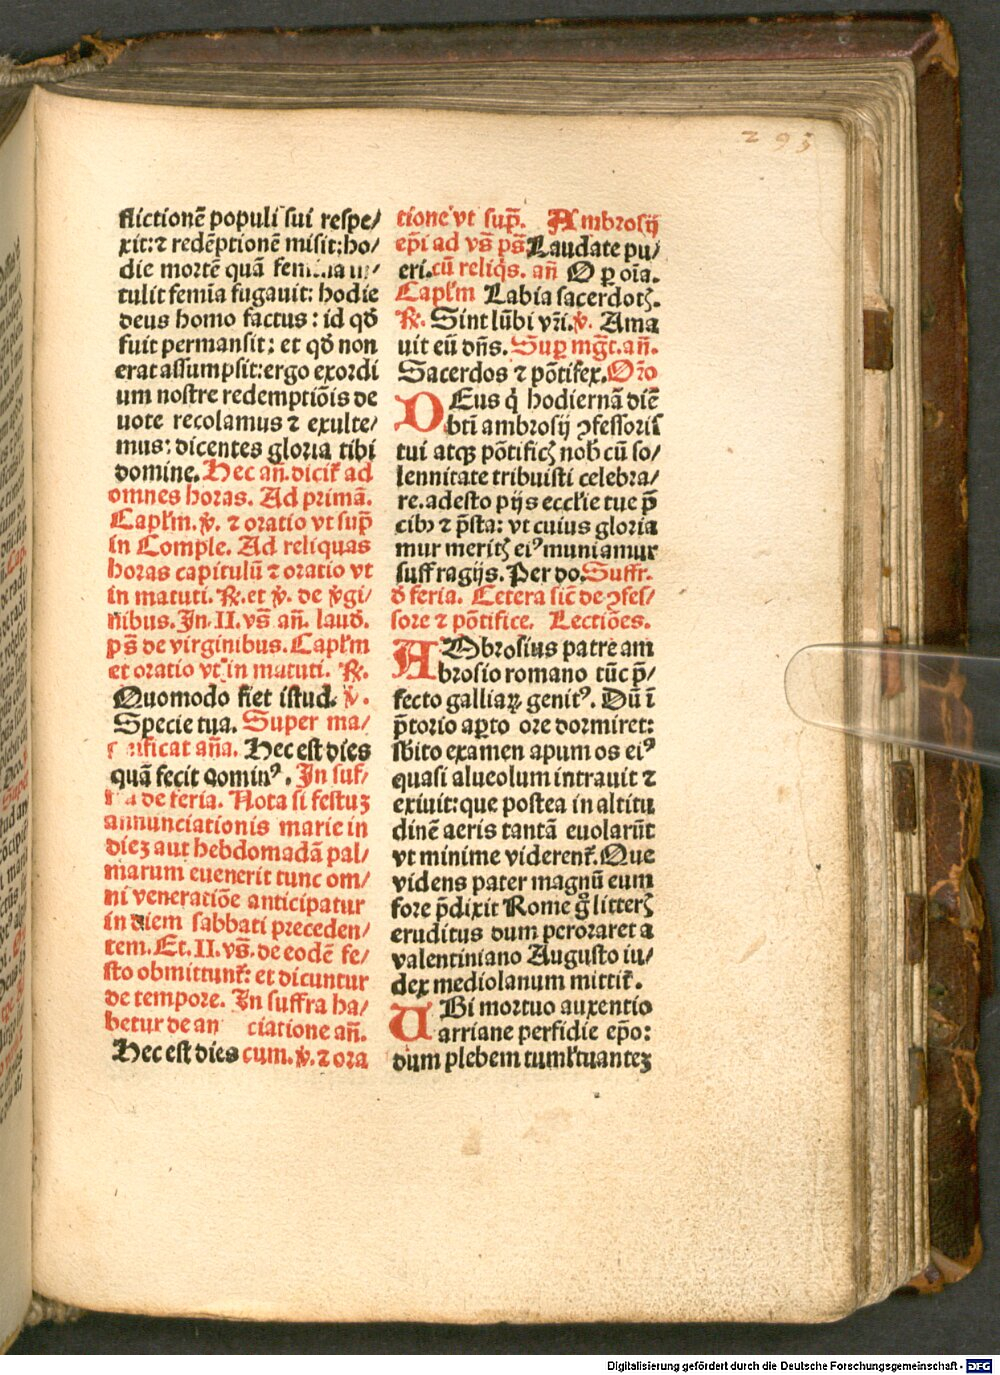 295
flictionē populi sui respe/
xit:⁊ redēptionē misit:ho/
die mortē quā femina in/
tulit femīa fugauit: hodie
deus homo factus : id qđ
fuit permansit: et qđ non
erat assumpsit:ergo exordi
um nostre redemptiōis de
uote recolamus ⁊ exulte/
mus: dicentes gloria tibi
domine. Hec añ. dicit̄ ad
omnes horas. Ad primā.
Capł'm. ꝟ. ⁊ oratio vt sup̄
in Comple. Ad reliquas
horas capitulū ⁊ oratio vt
in matuti. ℞. et ꝟ. de v̄gi/
nibus. In .II. vs̄ añ. laud.
ps̄ de virginibus. Capł'm
et oratio vt in matuti. ℞.
Quomodo fiet istud. ꝟ.
Specie tua. Super ma/
gnificat aña. Hec est dies
quā fecit domin⁹. In suf/
fra de feria. Nota si festuꝫ
annunciationis marie in
dieꝫ aut hebdomadā pal/
marum euenerit tunc om/
ni veneratiōe anticipatur
in diem sabbati preceden/
tem. Et .II. vs̄. de eodē fe/
sto obmittunt̄: et dicuntur
de tempore. In suffra ha/
betur de an ciatione añ.
Hec est dies cum. ꝟ. ⁊ ora
tione vt sup̄. Ambrosij
ep̄i ad vs̄ ps̄ Laudate pu/
eri. cū reliq̄s. añ O ꝑ oīa.
Capł'm Labia sacerdotꝭ.
℞. Sint lūbi vr̄i. ꝟ. Ama
uit eū dn̄s. Suꝑ mgt̄. añ.
Sacerdos ⁊ pōtifex. Oro
DEus q̇ hodiernā diē
bt̄i ambrosij ꝯfessoris
tui atqꝫ pōtificꝭ nob̄ cū so/
lennitate tribuisti celebra/
re. adesto pijs eccl'ie tue p̄
cibꝫ ⁊ p̄sta: vt cuius gloria
mur meritꝭ ei⁹ muniamur
suffragijs. Per do. Suffr.
đ feria. Cetera sic̄ de ꝯfes/
sore ⁊ pōtifice. Lectiōes.
AMbrosius patre am
brosio romano tūc p̄/
fecto galliaꝝ genit⁹. Dū ī
p̄torio aꝑto ore dormiret:
sb̄ito examen apum os ei⁹
quasi alueolum intrauit ⁊
exiuit: que postea in altitu
dinē aeris tantā euolarūt
vt minime viderent̄. Que
videns pater magnū eum
fore p̄dixit Rome g̊ litterꝭ
eruditus dum peroraret a
valentiniano Augusto iu/
dex mediolanum mittit̄.
UBi mortuo auxentio
arriane perfidie ep̄o:
dum plebem tumł'tuanteꝫ
Digitalisierung gefördert durch die Deutsche Forschungsgemeinschaft - DFG